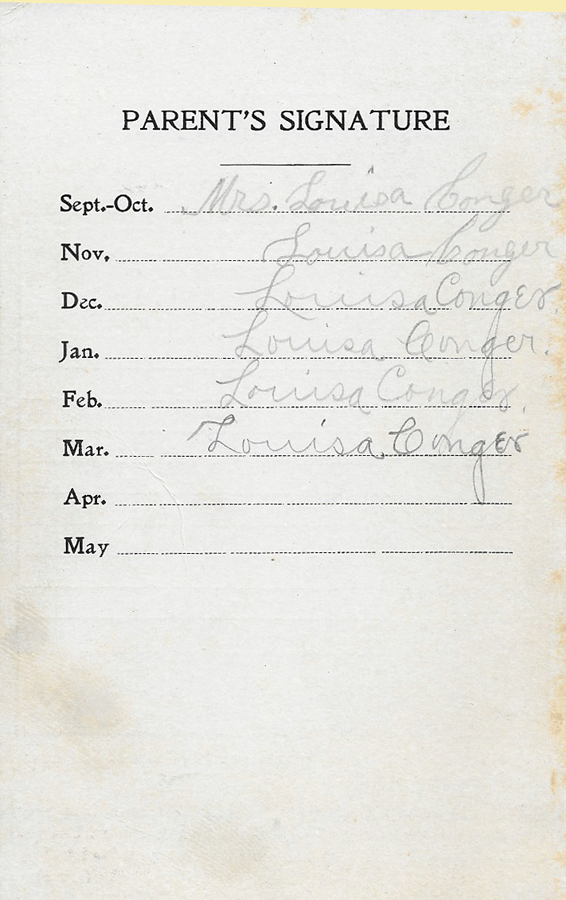 PARENT'S SIGNATURE
Sept.-Oct. Mrs. Louisa Conger
Nov. Louisa Conger
Dec. Louisa Conger.
Jan. Louisa Conger.
Feb. Louisa Conger.
Mar. Louisa Conger
Apr.
May